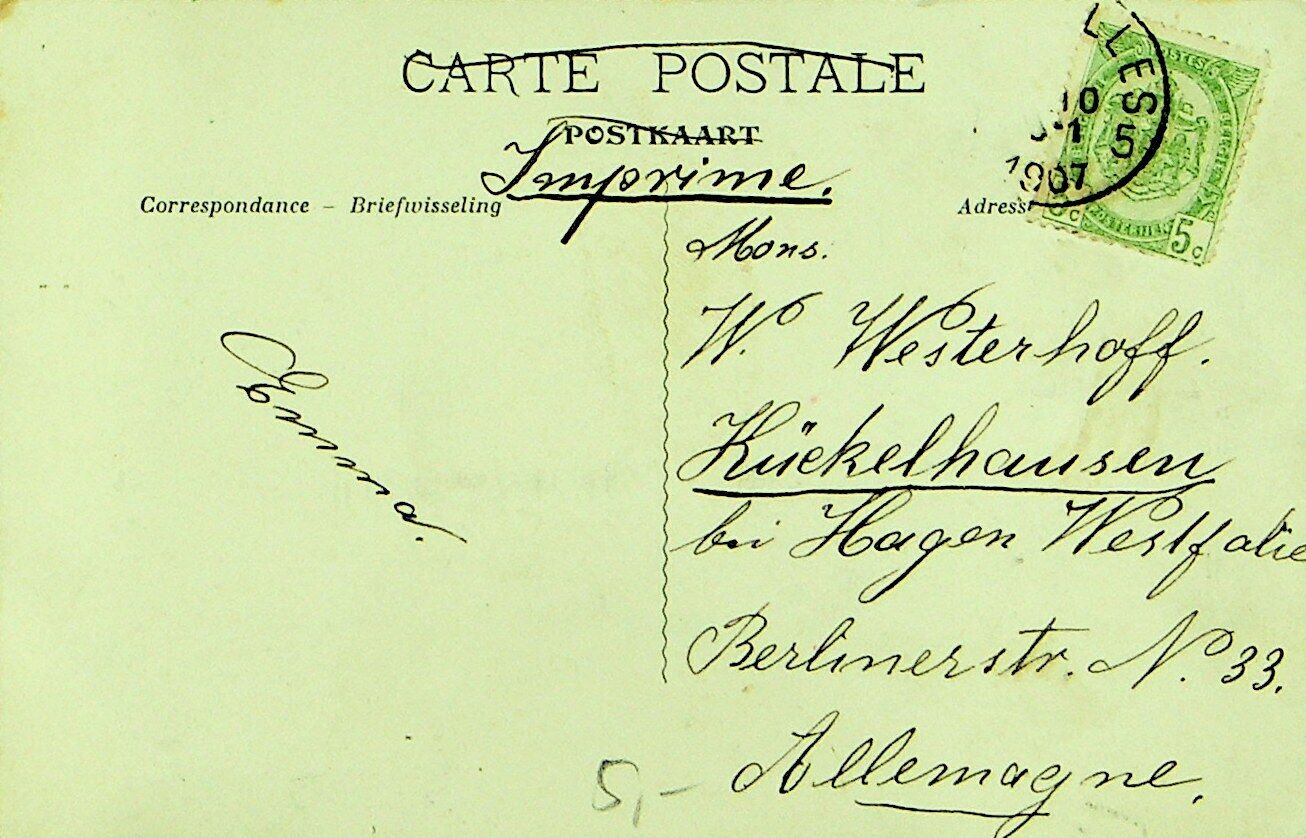 CARTE POSTALE
POSTKAART
Imprime.
Correspondance – Briefwisseling
Adress
LLES
10
1
5
1907
5c
Mons.
W. Westerhoff.
Kückelhausen
bei Hagen Westfalie
Berlinerstr. No. 33.
Allemagne.
5,-